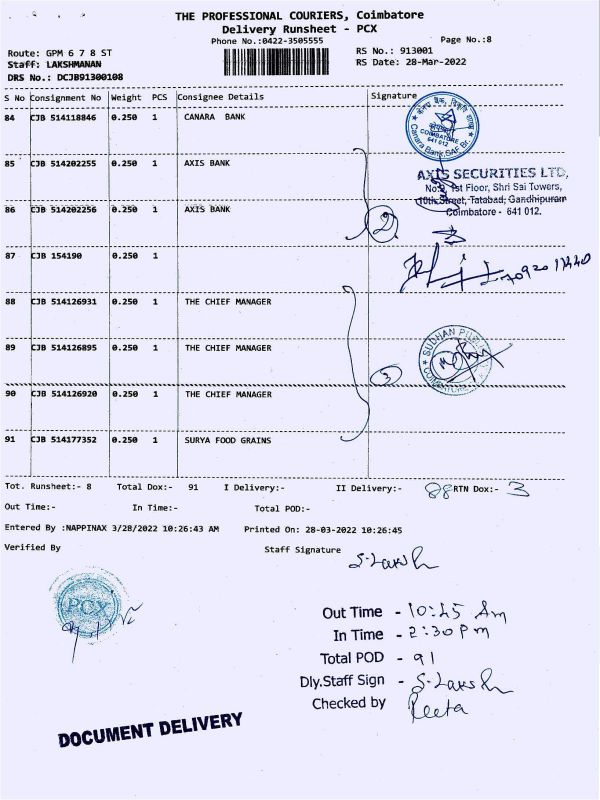 THE PROFESSIONAL COURIERS, Coimbatore
Delivery Runsheet - PCX
Phone No.:0422-3505555
Page No.:8
Route: GPM 6 7 8 ST
RS No.: 913001
Staff: LAKSHMANAN
RS Date: 28-Mar-2022
DRS No.: DCJB91300108
S No Consignment No Weight PCS Consignee Details Signature
84 CJB 514118846 0.250 1 CANARA BANK
COIMBATORE
641 012
Canara Bank
85 CJB 514202255 0.250 1 AXIS BANK
AXIS SECURITIES LTD,
1st Floor, Shri Sai Towers,
10th Street, Tatabad, Gandhipuram
Coimbatore - 641 012.
86 CJB 514202256 0.250 1 AXIS BANK
2
87 CJB 154190 0.250 1
88 CJB 514126931 0.250 1 THE CHIEF MANAGER
89 CJB 514126895 0.250 1 THE CHIEF MANAGER
SUDHAN
3
90 CJB 514126920 0.250 1 THE CHIEF MANAGER
91 CJB 514177352 0.250 1 SURYA FOOD GRAINS
Tot. Runsheet:- 8 Total Dox:- 91 I Delivery:- II Delivery:- 88 RTN Dox:- 3
Out Time:- In Time:- Total POD:-
Entered By :NAPPINAX 3/28/2022 10:26:43 AM Printed On: 28-03-2022 10:26:45
Verified By Staff Signature
S. Laksh
PCX
Out Time - 10:45 Am
In Time - 2:30 Pm
Total POD - 91
Dly.Staff Sign - S. Laksh
Checked by Reeta
DOCUMENT DELIVERY